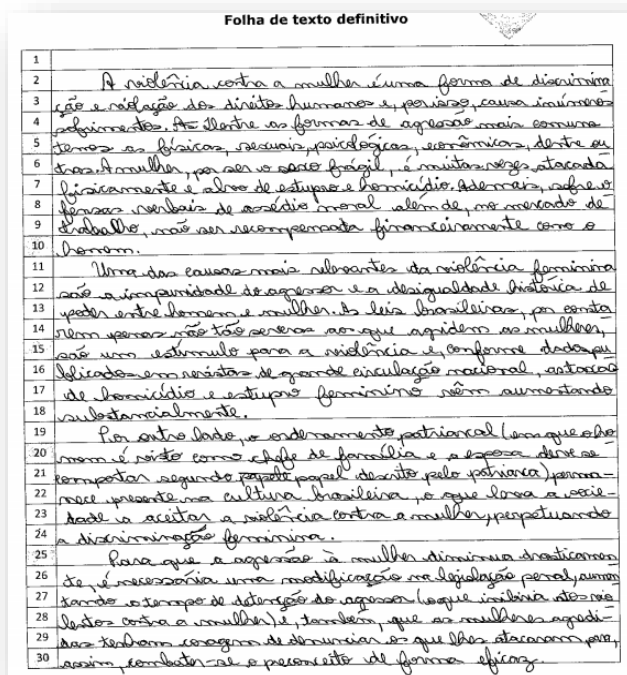 Folha de texto definitivo
1
2 A violência contra a mulher é uma forma de discrimina
3 ção e violação dos direitos humanos e, por isso, causa inúmeros
4 sofrimentos. As Dentre as formas de agressão mais comuns
5 temos as físicas, sexuais, psicológicas, econômicas, dentre ou
6 tras. A mulher, por ser o sexo frágil, é muitas vezes atacada
7 fisicamente e alvo de estupro e homicídio. Ademais, sofre o
8 fensas verbais de assédio moral além de, no mercado de
9 trabalho, não ser recompensada financeiramente como o
10 homem.
11 Uma das causas mais relevantes da violência feminina
12 são a impunidade do agressor e a desigualdade histórica de
13 poder entre homem e mulher. As leis brasileiras, por consta
14 rem penas não tão severas aos que agridem as mulheres,
15 são um estímulo para a violência e, conforme dados pu
16 blicados em revistas de grande circulação nacional, as taxas
17 de homicídio e estupro feminino vêm aumentando
18 substancialmente.
19 Por outro lado, o ordenamento patriarcal (em que o ho
20 mem é visto como chefe de família e a esposa deve se
21 comportar segundo papel descrito pelo patriarca) perma-
22 nece presente na cultura brasileira, o que leva a socie-
23 dade a aceitar a violência contra a mulher, perpetuando
24 a discriminação feminina.
25 Para que a agressão à mulher diminua drasticamen
26 te, é necessária uma modificação na legislação penal, aumen
27 tando o tempo de detenção do agressor (o que inibiria atos vio
28 lentos contra a mulher) e, também, que as mulheres agredi
29 das tenham coragem de denunciar os que lhes atacaram para,
30 assim, combater-se o preconceito de forma eficaz.